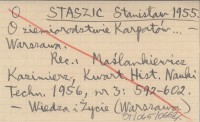 O STASZIC Stanisław 1955.
O ziemiorodztwie Karpatów... -
Warszawa.
Rec.: Maślankiewicz
Kazimierz, Kwart. Hist. Nauki
Techn. 1956, nr 3: 592-602.
- Wiedza i Życie (Warszawa)